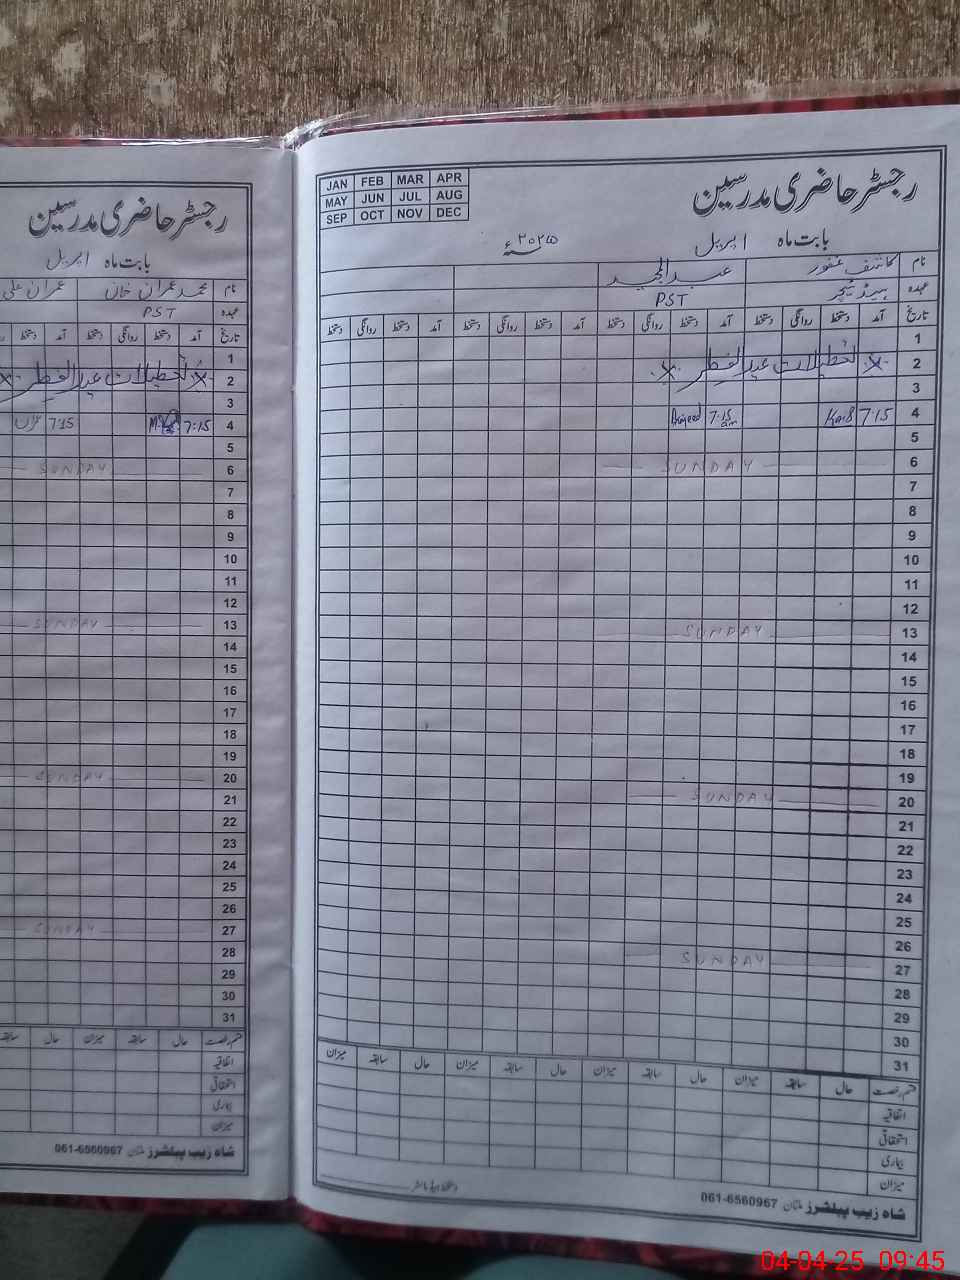 رجسٹر حاضری مدرسین
JAN FEB MAR APR
MAY JUN JUL AUG
SEP OCT NOV DEC
بابت ماہ اپریل ۲۰۲۵ء
نام کاشف غفور عبدالمجید
عہدہ ہیڈ ٹیچر PST
تاریخ آمد دستخط روانگی دستخط آمد دستخط روانگی دستخط آمد دستخط روانگی دستخط آمد دستخط روانگی دستخط
1
2 تعطیلات عید الفطر
3
4 7:15 7:15 am
5
6 SUNDAY
7
8
9
10
11
12
13 SUNDAY
14
15
16
17
18
19
20 SUNDAY
21
22
23
24
25
26
27 SUNDAY
28
29
30
31
قسم رخصت حال سابقہ میزان حال سابقہ میزان حال سابقہ میزان حال سابقہ میزان
اتفاقیہ
استحقاقی
بیماری
میزان
شاہ زیب پبلشرز ملتان 061-6560967
دستخط ہیڈ ماسٹر
رجسٹر حاضری مدرسین
بابت ماہ اپریل
نام محمد عمران خان عمران علی
عہدہ PST
تاریخ آمد دستخط روانگی دستخط آمد دستخط
1
2 تعطیلات عید الفطر
3
4 7:15 7:15
5
6 SUNDAY
7
8
9
10
11
12
13 SUNDAY
14
15
16
17
18
19
20 SUNDAY
21
22
23
24
25
26
27 SUNDAY
28
29
30
31
قسم رخصت حال سابقہ میزان حال سابقہ
اتفاقیہ
استحقاقی
بیماری
میزان
شاہ زیب پبلشرز ملتان 061-6560967
04-04-25 09:45